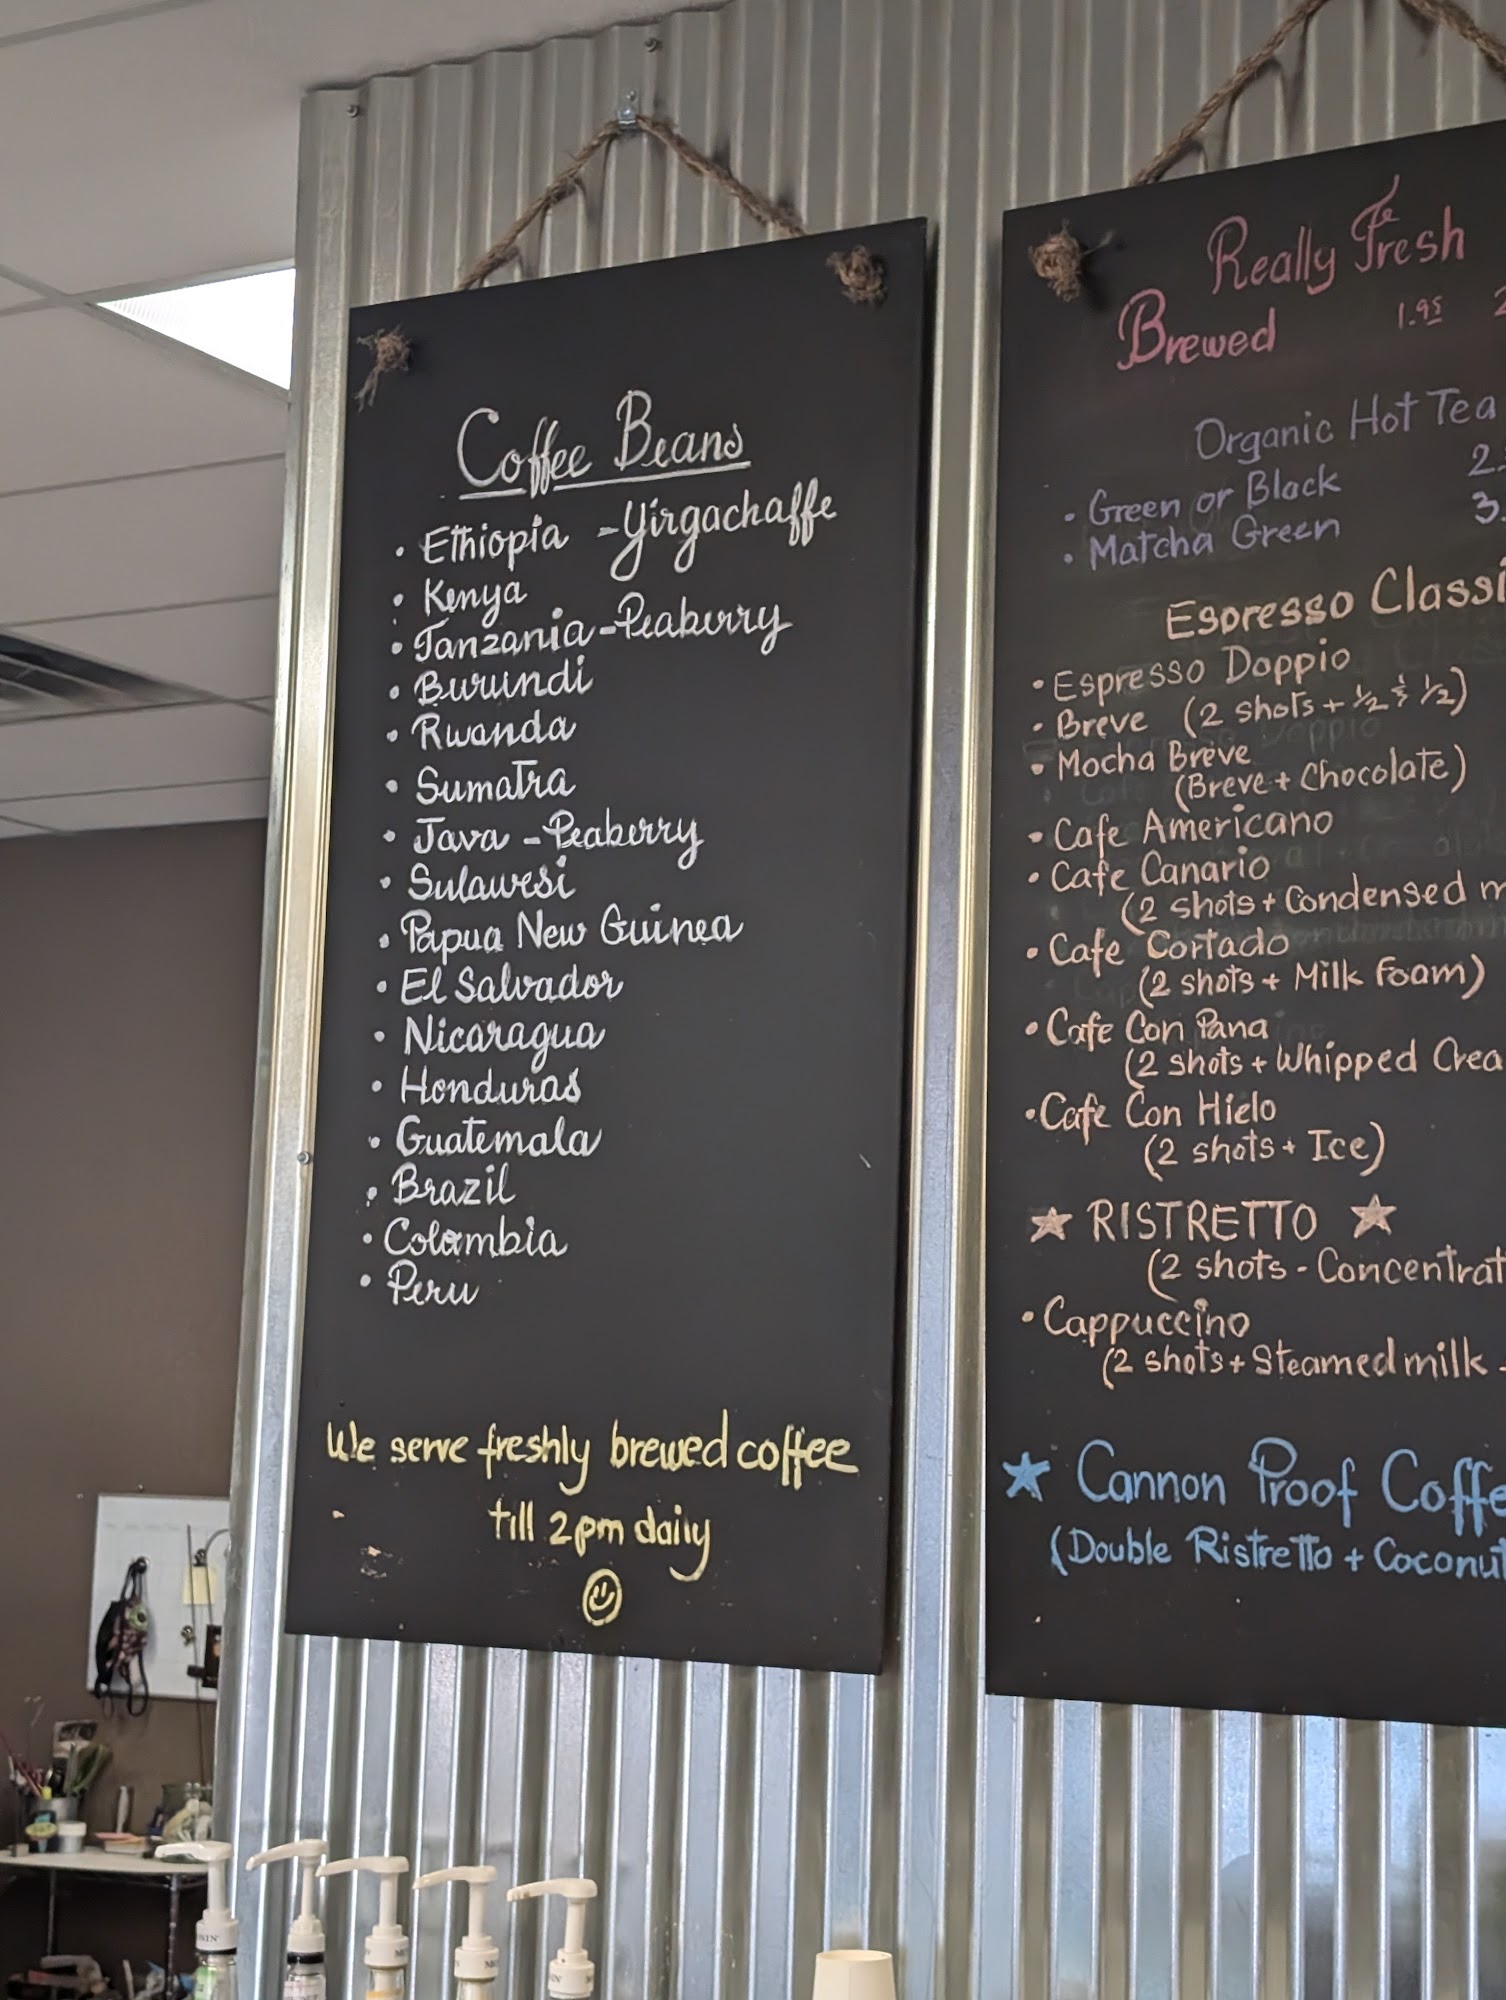 Coffee Beans
• Ethiopia - Yirgachaffe
• Kenya
• Tanzania - Peaberry
• Burundi
• Rwanda
• Sumatra
• Java - Peaberry
• Sulawesi
• Papua New Guinea
• El Salvador
• Nicaragua
• Honduras
• Guatemala
• Brazil
• Colombia
• Peru
We serve freshly brewed coffee
till 2pm daily
Really Fresh
Brewed 1.95
Organic Hot Tea
• Green or Black 2.
• Matcha Green 3.
Espresso Classi
• Espresso Doppio
• Breve (2 shots + ½ & ½)
• Mocha Breve
(Breve + Chocolate)
• Cafe Americano
• Cafe Canario
(2 shots + Condensed m
• Cafe Cortado
(2 shots + Milk Foam)
• Cafe Con Pana
(2 shots + Whipped Crea
• Cafe Con Hielo
(2 shots + Ice)
★ RISTRETTO ★
(2 shots - Concentrat
• Cappuccino
(2 shots + Steamed milk
★ Cannon Proof Coffe
(Double Ristretto + Coconut